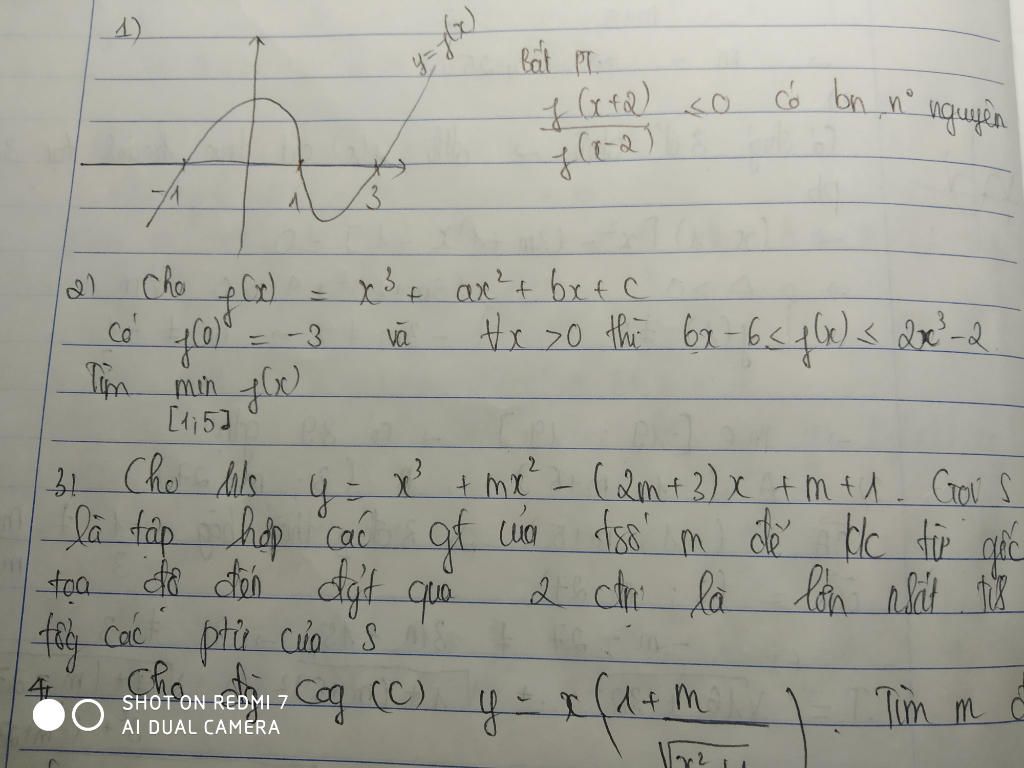 1)
y = f(x)
-1 1 3
Bất PT.
f(x+2) / f(x-2) ≤ 0 có bn n° nguyên
2) Cho f(x) = x³ + ax² + bx + c
có f(0) = -3 và ∀x > 0 thì 6x - 6 ≤ f(x) ≤ 2x³ - 2
Tìm min f(x)
[1;5]
3) Cho h/s y = x³ + mx² - (2m+3)x + m + 1. Gọi S
là tập hợp các gt của tss m để k/c từ gốc
tọa độ đến đgt qua 2 ctrị là lớn nhất
tổg các ptử của S
4 Cho cog (C) y = x(1 + m / √x² ). Tìm m
SHOT ON REDMI 7
AI DUAL CAMERA